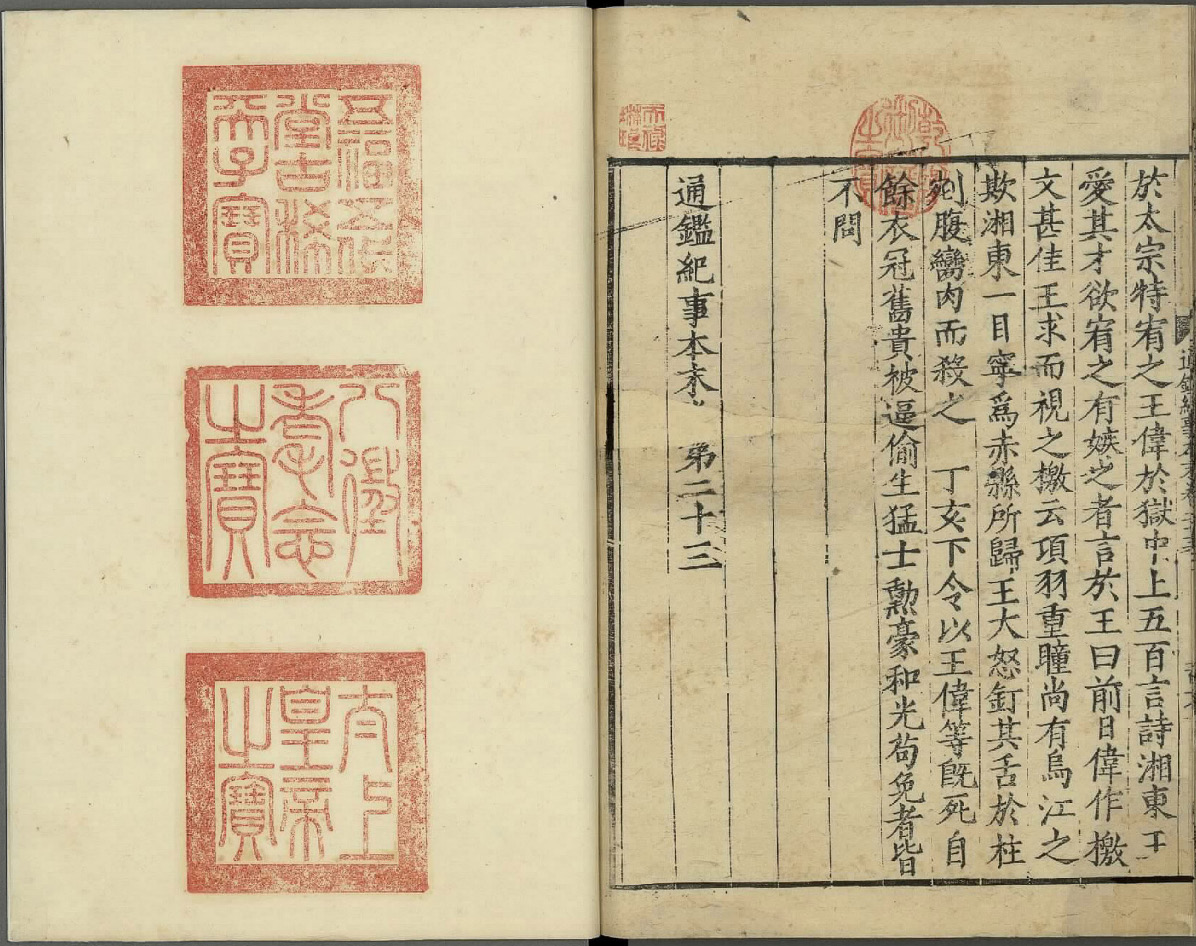 於太宗特宥之王偉於獄中上五百言詩湘東王
愛其才欲宥之有嫉之者言於王曰前日偉作檄
文甚佳王求而視之檄云項羽重瞳尚有烏江之
欺湘東一目寧爲赤縣所歸王大怒釘其舌於柱
剜腹臠肉而殺之 丁亥下令以王偉等既死自
餘衣冠舊貴被逼偷生猛士勲豪和光苟免者皆
不問
通鑑紀事本末 弟二十三
乾隆御覽之寶
天祿琳琅
五福五代堂古稀天子寶
八徵耄念之寶
太上皇帝之寶